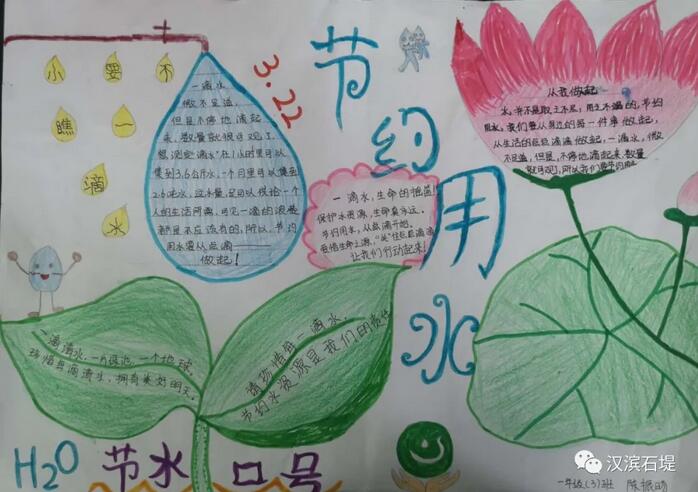 不要小
瞧一
滴
水
3.22
节约用水
一滴水
微不足道，
但是不停地滴起
来，数量就很可观了。
想测定"滴水"在1小时里可以
集到3.6公斤水，一个月里可以集到
2.6吨水，这水量，足可以供给一个
人的生活所需，可见一滴的浪费
都是不应该有的，所以，节约
用水要从点滴
做起！
一滴水，生命的摇篮！
保护水资源，生命真永远。
节约用水，从点滴开始。
让我们行动起来！
从我做起
水，并不是取之不尽，用之不竭的，节约
用水，我们要从身边的每一件事做起，
从生活的点点滴滴做起，一滴水，微
不足道，但是，不停地滴起来，数量
就可观了，所以我们要节约用水
一滴清水，一片绿地，一个地球。
珍惜每滴清水，拥有美好明天。
请珍惜每一滴水，
节约水资源是我们的责任
H2O 节水口号
汉滨石堤
一年级(3)班